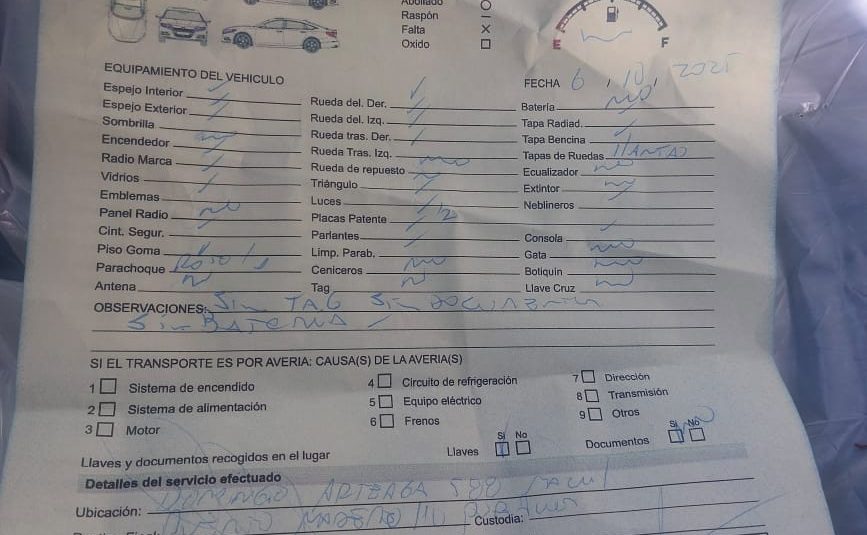 Abollado
Raspón
Falta
Oxido
E F
EQUIPAMIENTO DEL VEHICULO
FECHA 6 / 10 / 2025
Espejo Interior
Espejo Exterior
Sombrilla
Encendedor
Radio Marca
Vidrios
Emblemas
Panel Radio no
Cint. Segur.
Piso Goma
Parachoque
Antena
Rueda del. Der.
Rueda del. Izq.
Rueda tras. Der.
Rueda Tras. Izq.
Rueda de repuesto no
Triángulo
Luces
Placas Patente
Parlantes
Limp. Parab.
Ceniceros no
Tag
Batería no
Tapa Radiad.
Tapa Bencina
Tapas de Ruedas LLANTAS
Ecualizador no
Extintor
Neblineros
Consola
Gata
Botiquin
Llave Cruz
OBSERVACIONES: Sin TAG Sin
Sin BATERIA
SI EL TRANSPORTE ES POR AVERIA: CAUSA(S) DE LA AVERIA(S)
1 Sistema de encendido
2 Sistema de alimentación
3 Motor
4 Circuito de refrigeración
5 Equipo eléctrico
6 Frenos
7 Dirección
8 Transmisión
9 Otros
Llaves y documentos recogidos en el lugar
Llaves Si No
Documentos Si No
Detalles del servicio efectuado
DOMINGO ARTEAGA 588
Ubicación:
Custodia: